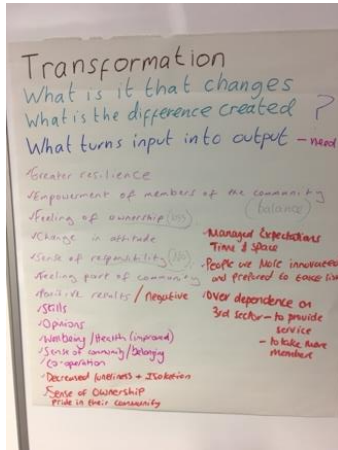 Transformation
What is it that changes
What is the difference created ?
What turns input into output - need
✓Greater resilience
✓Empowerment of members of the community
(balance)
✓Feeling of ownership (loss)
✓Change in attitude
✓Sense of responsibility
✓Feeling part of community
✓Positive results / negative
✓Skills
✓Opinions
✓Wellbeing / Health (improved)
✓Sense of community / belonging
✓Co-operation
✓Decreased loneliness + Isolation
✓Sense of Ownership
Pride in their community
✓Managed Expectations
Time & space
✓People are More innovative
and prepared to take
✓Over dependence on
3rd sector - to provide
service
- to take more
members